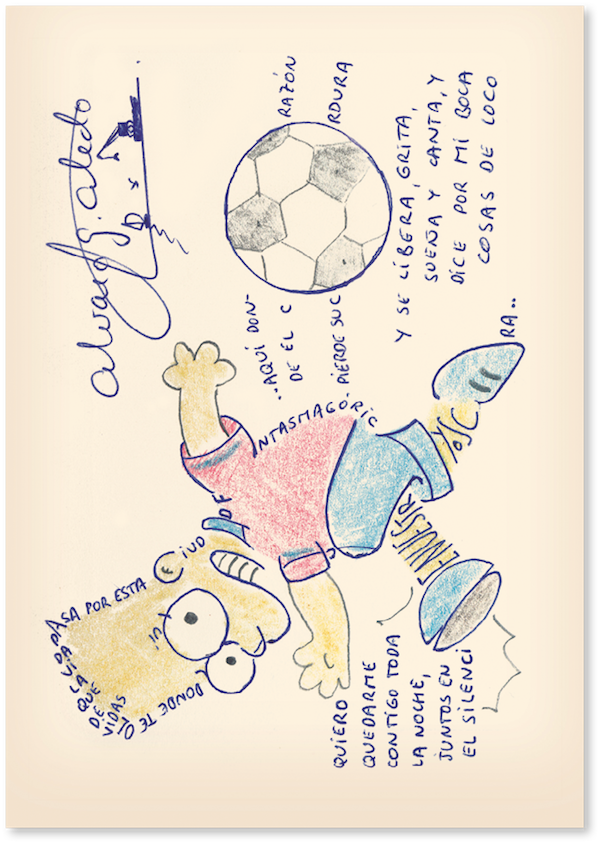 alvaro g. aledo
QUIERO
QUEDARME
CONTIGO TODA
LA NOCHE,
JUNTOS EN
EL SILENCI
EN NUESTR
DONDE TE OL
VIDAS
DE QUE LA VIDA PASA POR ESTA
CIUD D F NTASMAGÓRIC
Y OSC RA..
..AQUÍ DON-
DE EL C RAZÓN
PIERDE SU C RDURA
Y SE LIBERA, GRITA,
SUEÑA Y CANTA, Y
DICE POR MI BOCA
COSAS DE LOCO